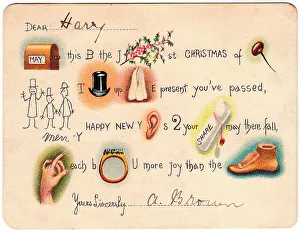 DEAR Harry
MAY this B the J st CHRISTMAS of
T up E present you've passed,
men-Y HAPPY NEW Y S 2 your SHARE may there fall,
each b U more joy than the
Yours Sincerely A. Brown